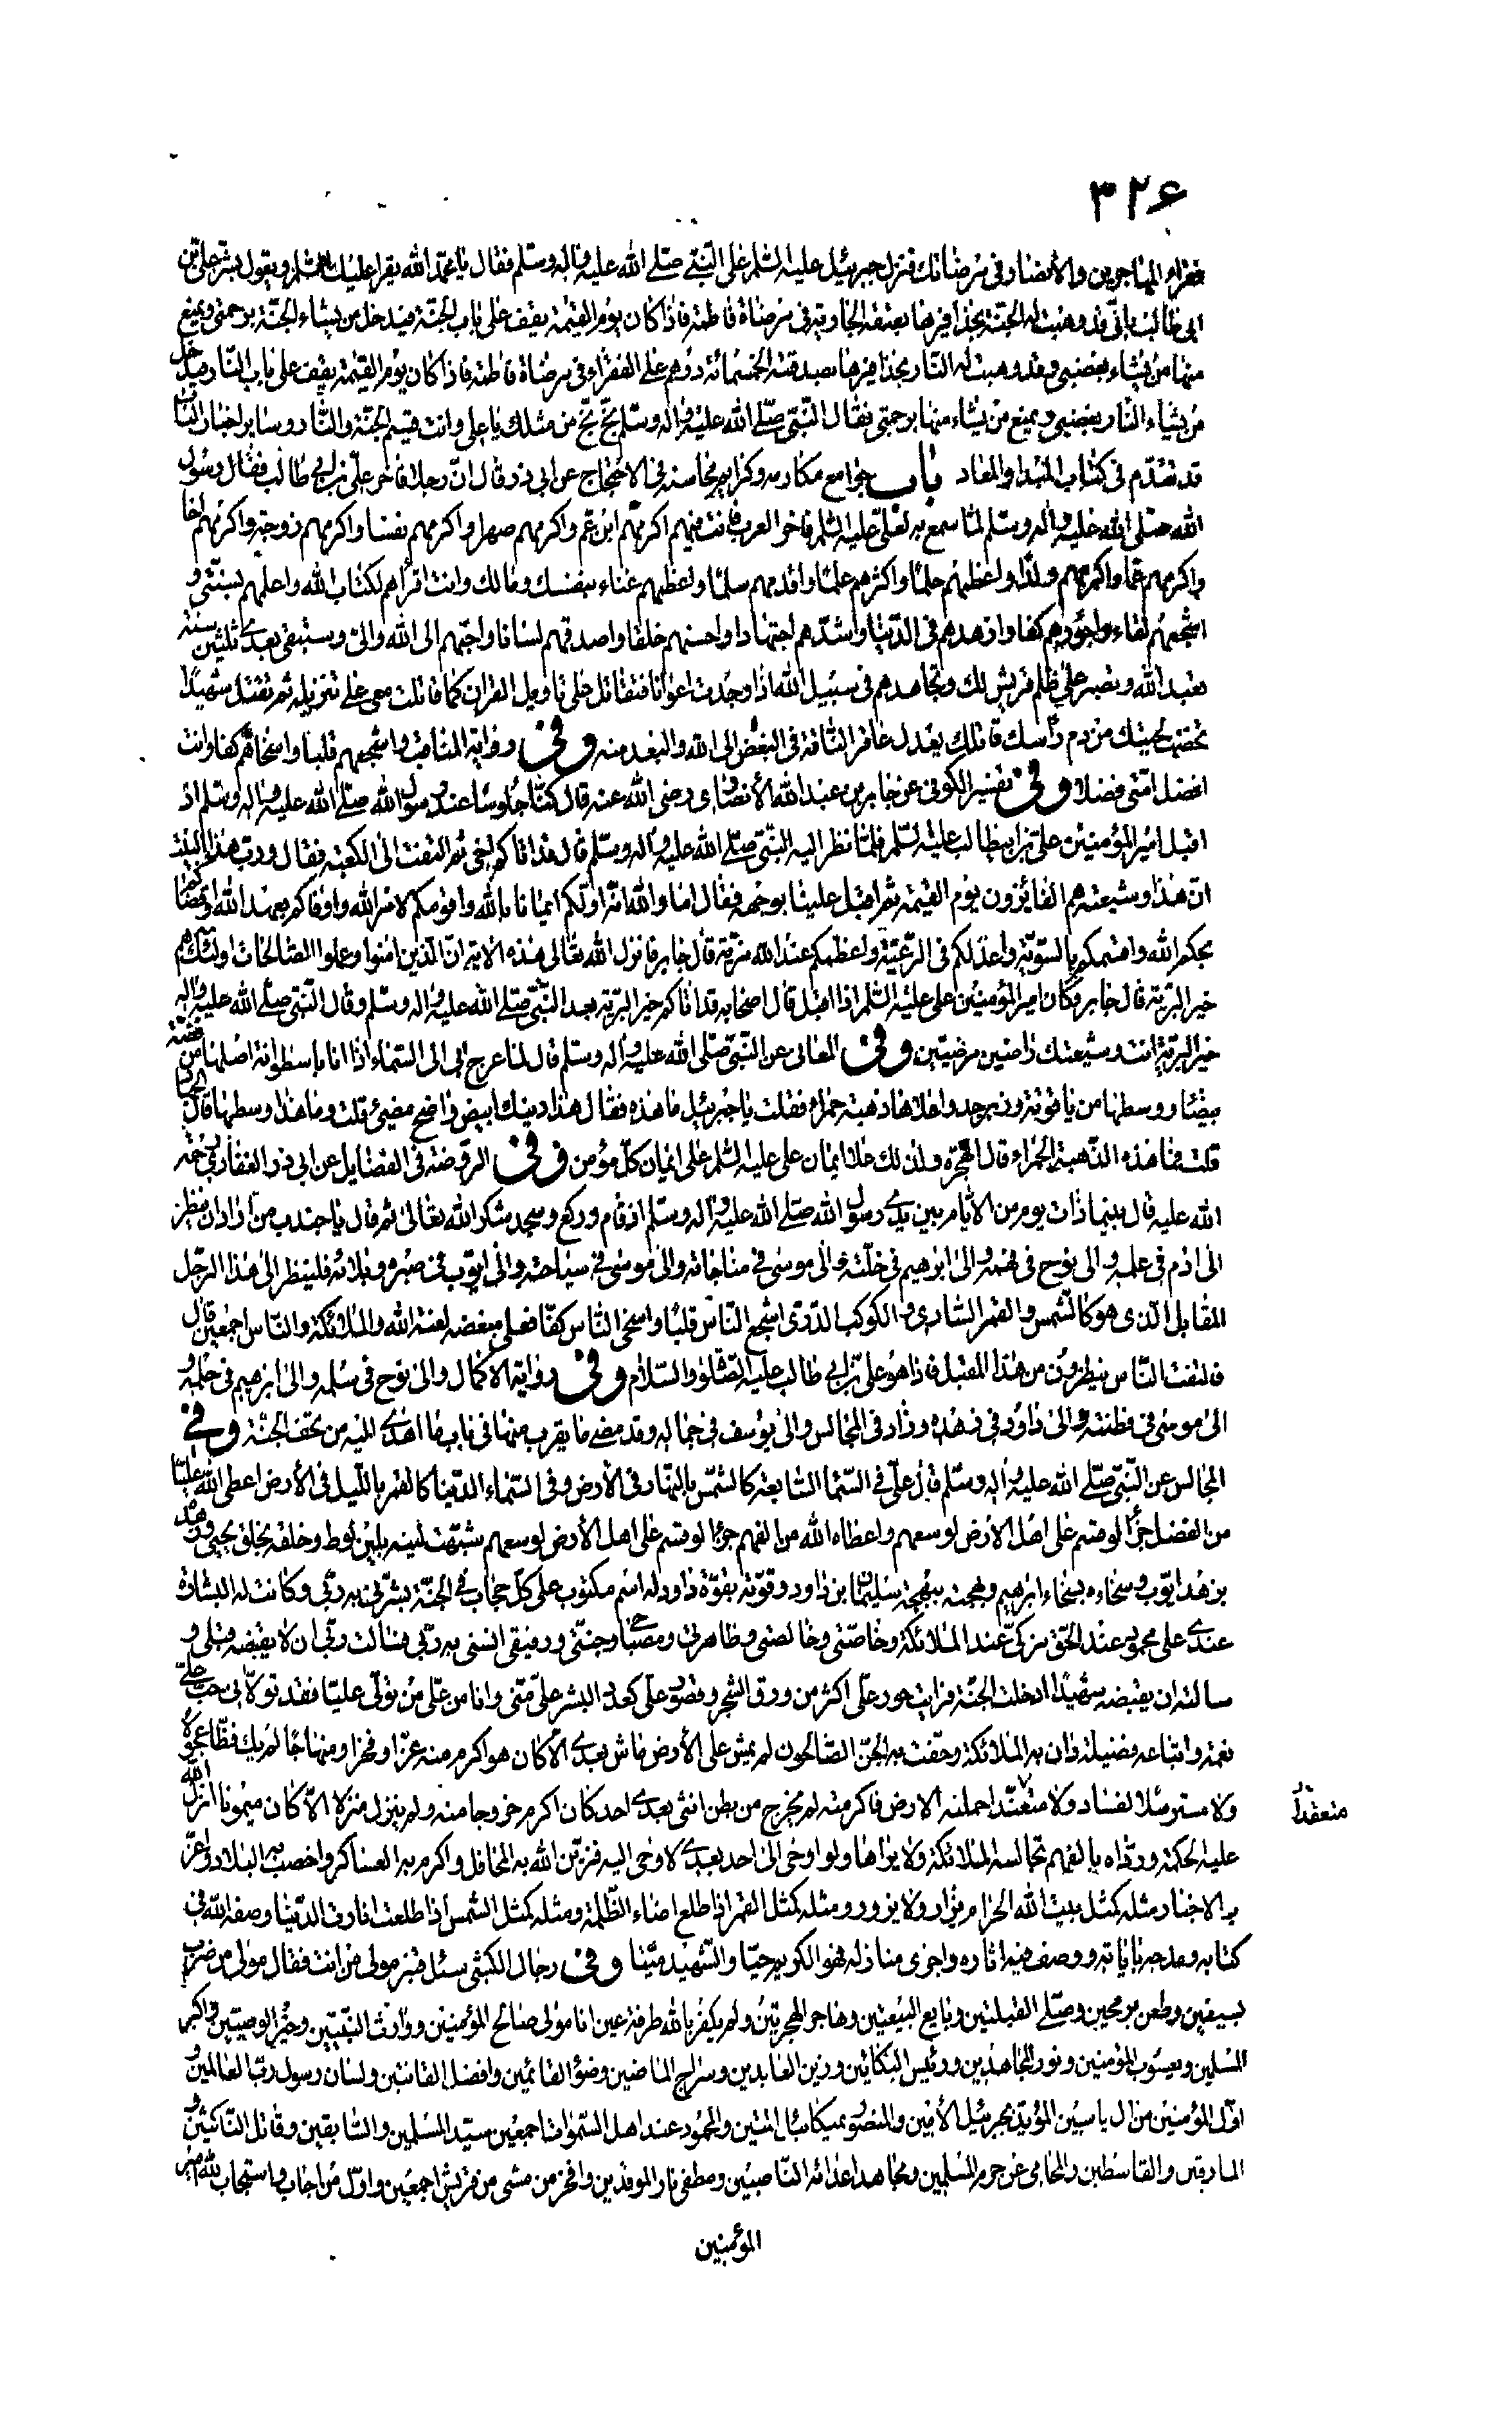 ٣٢۶
فقراء المهاجرين والأنصار في مرضاتك فنزل جبرئيل عليه السّلم على النّبيّ صلّى الله عليه واله وسلّم فقال يا محمّد الله يقرا عليك السّلم ويقول بشّر عليّ بن
ابي طالب بانّي قد وهبت له الجنّة بحذافيرها بعتقه الجارية في مرضاة فاطمة فاذا كان يوم القيمة يقف على باب الجنّة فيدخل من يشاء الجنّة برحمتي ويمنع
منها من يشاء بغضبي وقد وهبت له النّار بحذافيرها بصدقته الخمسمائة درهم على الفقراء في مرضاة فاطمة فاذا كان يوم القيمة يقف على باب النّار فيدخل
من يشاء النّار بغضبي ويمنع من يشاء منها برحمتي فقال النّبيّ صلّى الله عليه واله وسلّم بخّ بخّ من مثلك يا علي وانت قسيم الجنّة والنّار وساير اخبار الباب
قد تقدّم في كتاب المبدا والمعاد باب جوامع مكارمه وكرايم محاسنه في الاحتجاج عن ابي ذر قال انّ رجلا فاخر عليّ بن ابي طالب فقال رسول
الله صلّى الله عليه واله وسلّم لمّا سمع به لعليّ عليه السّلم فاخر العرب فانت فيهم اكرمهم ابن عم واكرمهم صهرا واكرمهم نفسا واكرمهم زوجة واكرمهم اخا
واكرمهم عمّا واكرمهم ولدا واعظمهم حلما واكثرهم علما واقدمهم سلما واعظمهم غناء بنفسك ومالك وانت اقراهم لكتاب الله واعلمهم بسنّتي و
اشجعهم لقاء واجودهم كفا وازهدهم في الدّنيا واشدّهم اجتهادا واحسنهم خلقا واصدقهم لسانا واحبّهم الى الله والىّ وستبقى بعدي ثلثين سنة
تعبد الله وتصبر على ظلم قريش لك وتجاهدهم في سبيل الله اذا وجدت اعوانا فتقاتل على تاويل القران كما قاتلت معي على تنزيله ثم تقتل شهيدا
تخضب لحيتك من دم راسك قاتلك يعدل عاقر النّاقة في البغض الى الله والبعد منه وفي رواية المناقب واشجعهم قلبا واسخاهم كفا وانت
افضل امّتي فضلا وفي تفسير الكوفي عن جابر بن عبد الله الأنصاري رضي الله عنه قال كنّا جلوسا عند رسول الله صلّى الله عليه واله وسلّم اذ
اقبل امير المؤمنين علي بن ابيطالب عليه السّلم فلمّا نظر اليه النّبيّ صلّى الله عليه واله وسلّم قال قد اتاكم اخي ثم التفت الى الكعبة فقال وربّ هذا البيت
انّ هذا وشيعته هم الفائزون يوم القيمة ثم اقبل علينا بوجهه فقال اما والله انّه اولكم ايمانا بالله واقومكم لامر الله واوفاكم بعهد الله واقضاكم
بحكم الله واقسمكم بالسّويّة واعدلكم في الرّعيّة واعظمكم عند الله مزيّة قال جابر فانزل الله تعالى هذه الاية انّ الّذين امنوا وعملوا الصّالحات اولئك هم
خير البريّة قال جابر وكان امير المؤمنين علي عليه السّلم اذا اقبل قال اصحابه قد اتاكم خير البريّة بعد النّبيّ صلّى الله عليه واله وسلّم وقال النّبيّ صلّى الله عليه واله
خير البريّة انت وشيعتك راضين مرضيّين وفي المعاني عن النّبيّ صلّى الله عليه واله وسلّم قال لمّا عرج بي الى السّماء اذا انا باسطوانة اصلها من فضّة
بيضاء ووسطها من ياقوتة وزبرجد واعلاها ذهبة حمراء فقلت يا جبرئيل ما هذه فقال هذا دينك ابيض واضح مضيئ قلت وما هذا وسطها قال الجهاد
قلت فما هذه الذّهبة الحمراء قال الهجرة ولذلك علا ايمان علي عليه السّلم على ايمان كلّ مؤمن وفي الرّوضة في الفضايل عن ابي ذر الغفاري رحمة
الله عليه قال بينما ذات يوم من الأيّام بين يدي رسول الله صلّى الله عليه واله وسلّم اذ قام وركع وسجد شكرا لله تعالى ثم قال يا جندب من اراد ان ينظر
الى ادم في علمه والى نوح في فهمه والى ابرهيم في خلّته والى موسى في مناجاته والى عيسى في سياحته والى ايّوب في صبره وبلائه فلينظر الى هذا الرّجل
المقابل الّذي هو كالشّمس والقمر السّاري والكوكب الدّرّي اشجع النّاس قلبا واسخى النّاس كفّا فعلى مبغضه لعنة الله والملائكة والنّاس اجمعين قال
فالتفت النّاس ينظرون من هذا المقبل فاذا هو عليّ بن ابي طالب عليه الصّلوة والسّلام وفي رواية الاكمال والى نوح في سلمه والى ابرهيم في حلمه و
الى موسى في فطنته والى داود في زهده وزاد في المجالس والى يوسف في جماله وقد مضى ما يقرب منها في باب ما اهدي اليه من تحف الجنّة وفي
المجالس عن النّبيّ صلّى الله عليه واله وسلّم قال علي في السّماء السّابعة كالشّمس بالنّهار في الأرض وفي السّماء الدّنيا كالقمر باللّيل في الأرض اعطى الله عليّا
من الفضل جزءا لو قسّم على اهل الأرض لوسعهم واعطاه الله من الفهم جزءا لو قسّم على اهل الأرض لوسعهم شبّهت لينه بلين لوط وخلقه بخلق يحيى وزهده
بزهد ايّوب وسخاءه بسخاء ابرهيم وبهجته ببهجة سليمان بن داود وقوّته بقوّة داود له اسم مكتوب على كلّ حجاب في الجنّة بشّرني به ربّي وكانت له البشارة
عندي علي محمود عند الحقّ مزكّى عند الملائكة وخاصّتي وخالصتي وظاهرتي ومصباحي وجنّتي ورفيقي انسني به ربّي فسالت ربّي ان لا يقبضه قبلي و
سالته ان يقبضه شهيدا ادخلت الجنّة فرايت حور علي اكثر من ورق الشّجر وقصور علي كعدد البشر علي منّي وانا من علي من تولّى عليّا فقد تولّاني حبّ علي
نعمة واتّباعه فضيلة دان به الملائكة وحفّت به الجنّ الصّالحون لم يمش على الأرض ماش بعدي الّا كان هو اكرم منه عزّا وفخرا ومنهاجا لم يك فظّا عجولا
ولا مسترسلا لفساد ولا متعنّدا حملته الارض فاكرمته لم يخرج من بطن انثى بعدي احد كان اكرم خروجا منه ولم ينزل منزلا الّا كان ميمونا انزل الله
متعقّدا
عليه الحكمة وردّاه بالفهم تجالسه الملائكة ولا يراها ولو اوحي الى احد بعدي لاوحي اليه فزيّن الله به المحافل واكرم به العساكر واخصب به البلاد واعزّ
به الاجناد مثله كمثل بيت الله الحرام يزار ولا يزور ومثله كمثل القمر اذا طلع اضاء الظّلمة ومثله كمثل الشّمس اذا طلعت انارت الدّنيا وصفه الله في
كتابه ومدحه باياته ووصف فيه اثاره واجرى منازله فهو الكريم حيّا والشّهيد ميّتا وفي رجال الكشّي سئل قنبر مولى من انت فقال مولى من ضرب
بسيفين وطعن برمحين وصلّى القبلتين وبايع البيعتين وهاجر الهجرتين ولم يكفر بالله طرفة عين انا مولى صالح المؤمنين ووارث النّبيّين وخير الوصيّين واكبر
المسلمين ويعسوب المؤمنين ونور المجاهدين ورئيس البكّائين وزين العابدين وسراج الماضين وضوء القائمين وافضل القانتين ولسان رسول ربّ العالمين
اوّل المؤمنين من ال ياسين المؤيّد بجبرئيل الأمين والمنصور بميكائيل المتين والمحمود عند اهل السّموات اجمعين سيّد المسلمين والسّابقين وقاتل النّاكثين و
المارقين والقاسطين والمحامي عن حرم المسلمين ومجاهد اعدائه النّاصبين ومطفي نار الموقدين وافخر من مشى من قريش اجمعين واوّل من اجاب واستجاب لله امير
المؤمنين